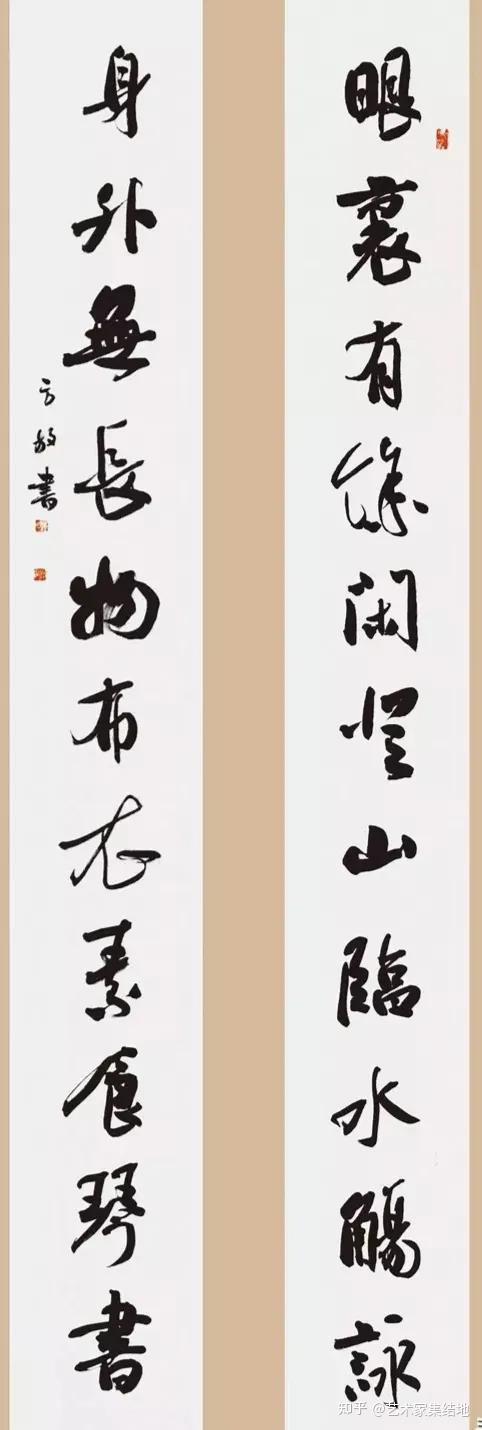 眼裏有餘閑登山臨水觴詠
身外無長物布衣素食琴書
方書
知乎 @艺术家集结地